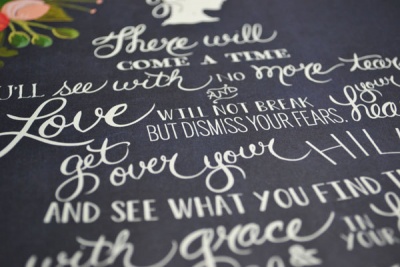 There will
COME A TIME
U'LL see with NO more tear
AND
Love WILL NOT BREAK your
BUT DISMISS YOUR FEARS. hea
get over your HILL
AND SEE WHAT YOU FIND TH
with grace IN
& YOUR